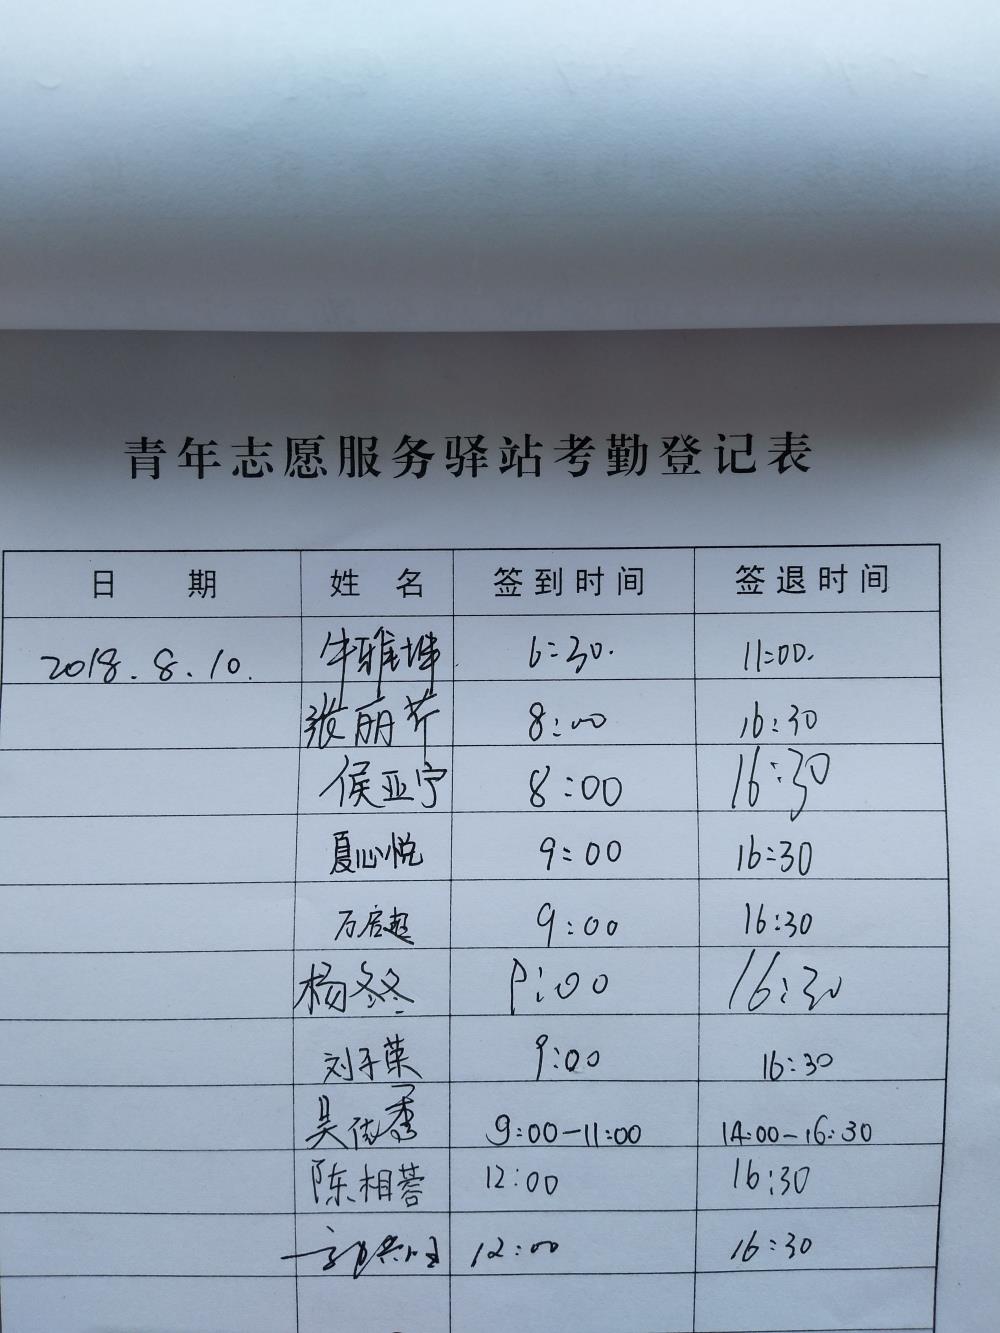 青年志愿服务驿站考勤登记表
日 期 姓 名 签到时间 签退时间
2018.8.10. 牛雅坤 6:30. 11:00.
张丽芹 8:00 16:30
侯亚宁 8:00 16:30
夏心悦 9:00 16:30
万启超 9:00 16:30
杨冬冬 9:00 16:30
刘子荣 9:00 16:30
吴依秀 9:00-11:00 14:00-16:30
陈相蓉 12:00 16:30
12:00 16:30